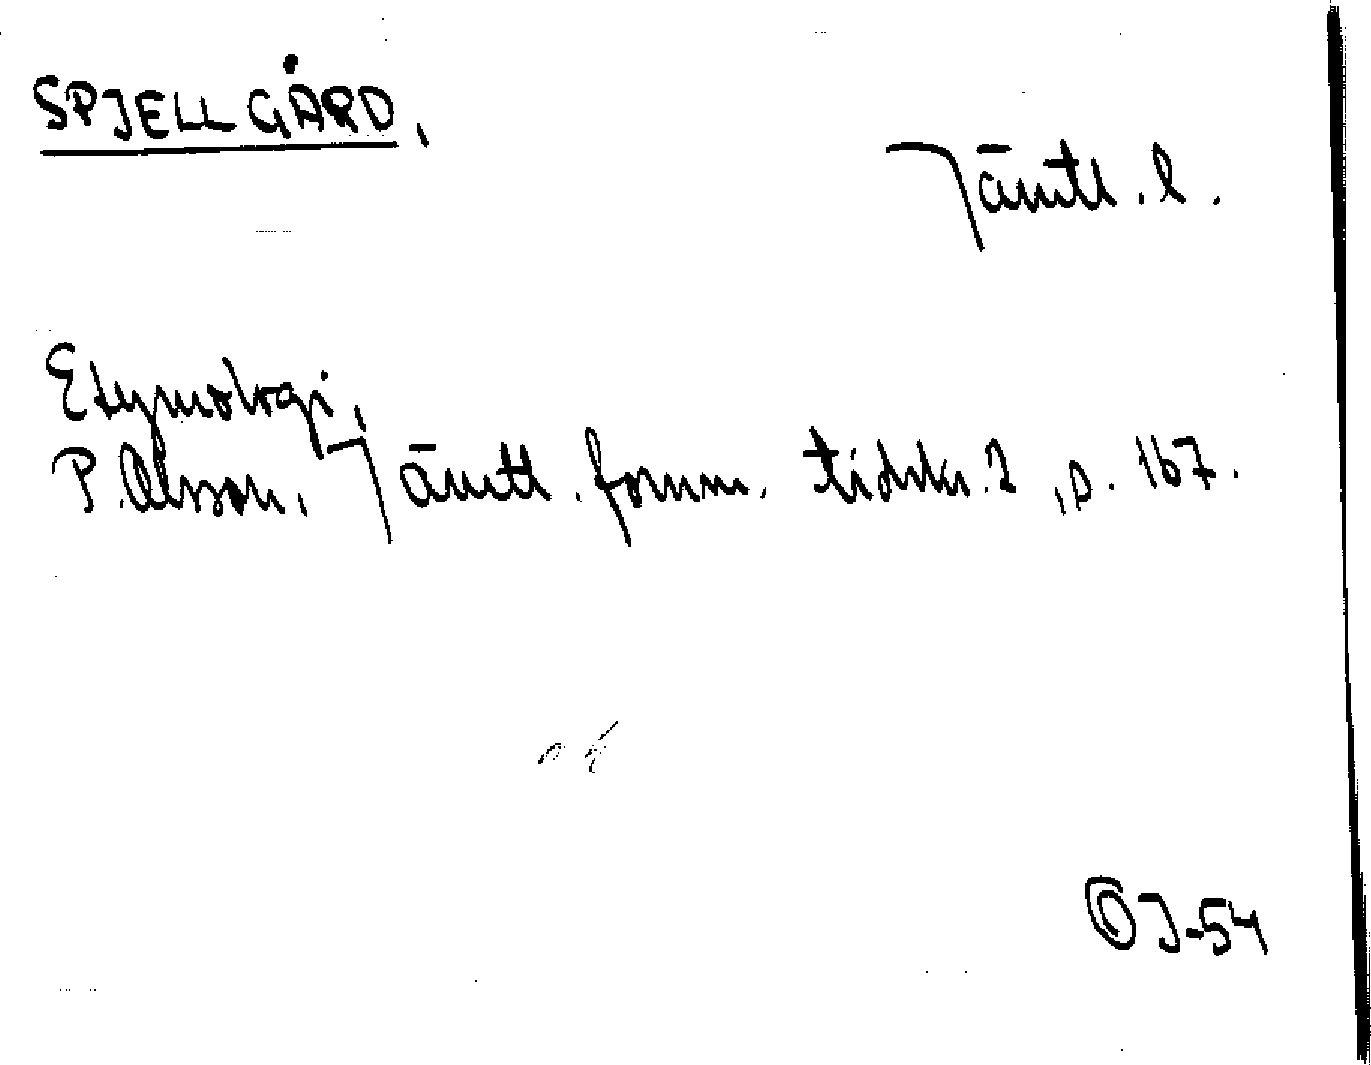 SPJELLGÅRD,
Jämtl. l.
Etymologi,
P. Olsson, Jämtl. fornm. tidskr. 2, s. 167.
OJ-54